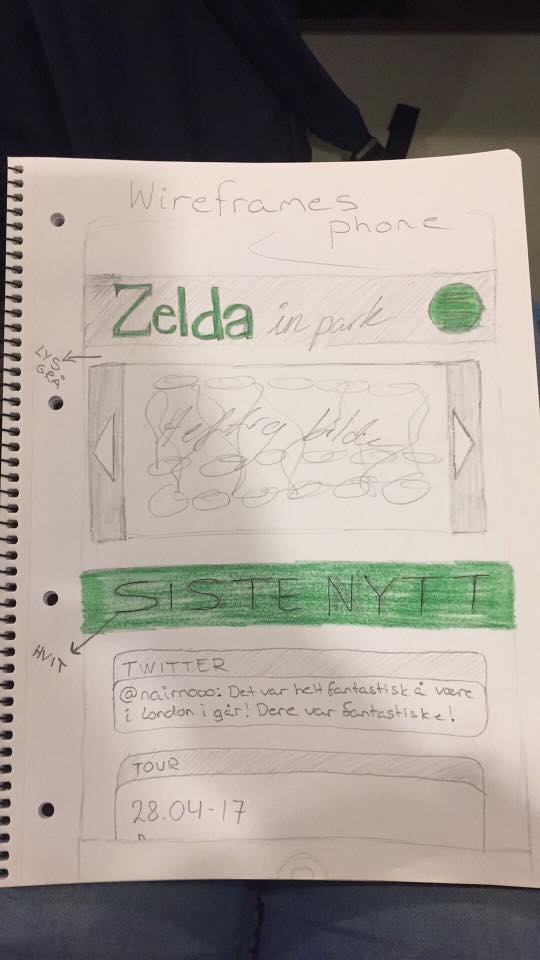 Wireframes
phone
Zelda in park
LYS
GRÅ
Heftig bilde
SISTE NYTT
HVIT
TWITTER
@nairnooo: Det var helt fantastisk å være
i London i går! Dere var fantastiske!
TOUR
28.04-17